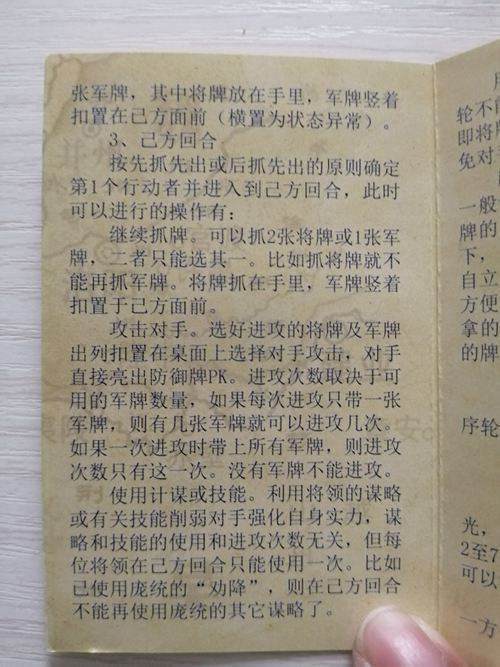 张军牌，其中将牌放在手里，军牌竖着
扣置在己方面前（横置为状态异常）。
3、己方回合
按先抓先出或后抓先出的原则确定
第1个行动者并进入到己方回合，此时
可以进行的操作有：
继续抓牌。可以抓2张将牌或1张军
牌，二者只能选其一。比如抓将牌就不
能再抓军牌。将牌抓在手里，军牌竖着
扣置于己方面前。
攻击对手。选好进攻的将牌及军牌
出列扣置在桌面上选择对手攻击，对手
直接亮出防御牌PK。进攻次数取决于可
用的军牌数量，如果每次进攻只带一张
军牌，则有几张军牌就可以进攻几次。
如果一次进攻时带上所有军牌，则进攻
次数只有这一次。没有军牌不能进攻。
使用计谋或技能。利用将领的谋略
或有关技能削弱对手强化自身实力，谋
略和技能的使用和进攻次数无关，但每
位将领在己方回合只能使用一次。比如
已使用庞统的“劝降”，则在己方回合
不能再使用庞统的其它谋略了。
轮不
即将牌
免对
一般
牌的
下，
自立
方便
拿的
的牌
序轮
光，
2至7
可以
一方